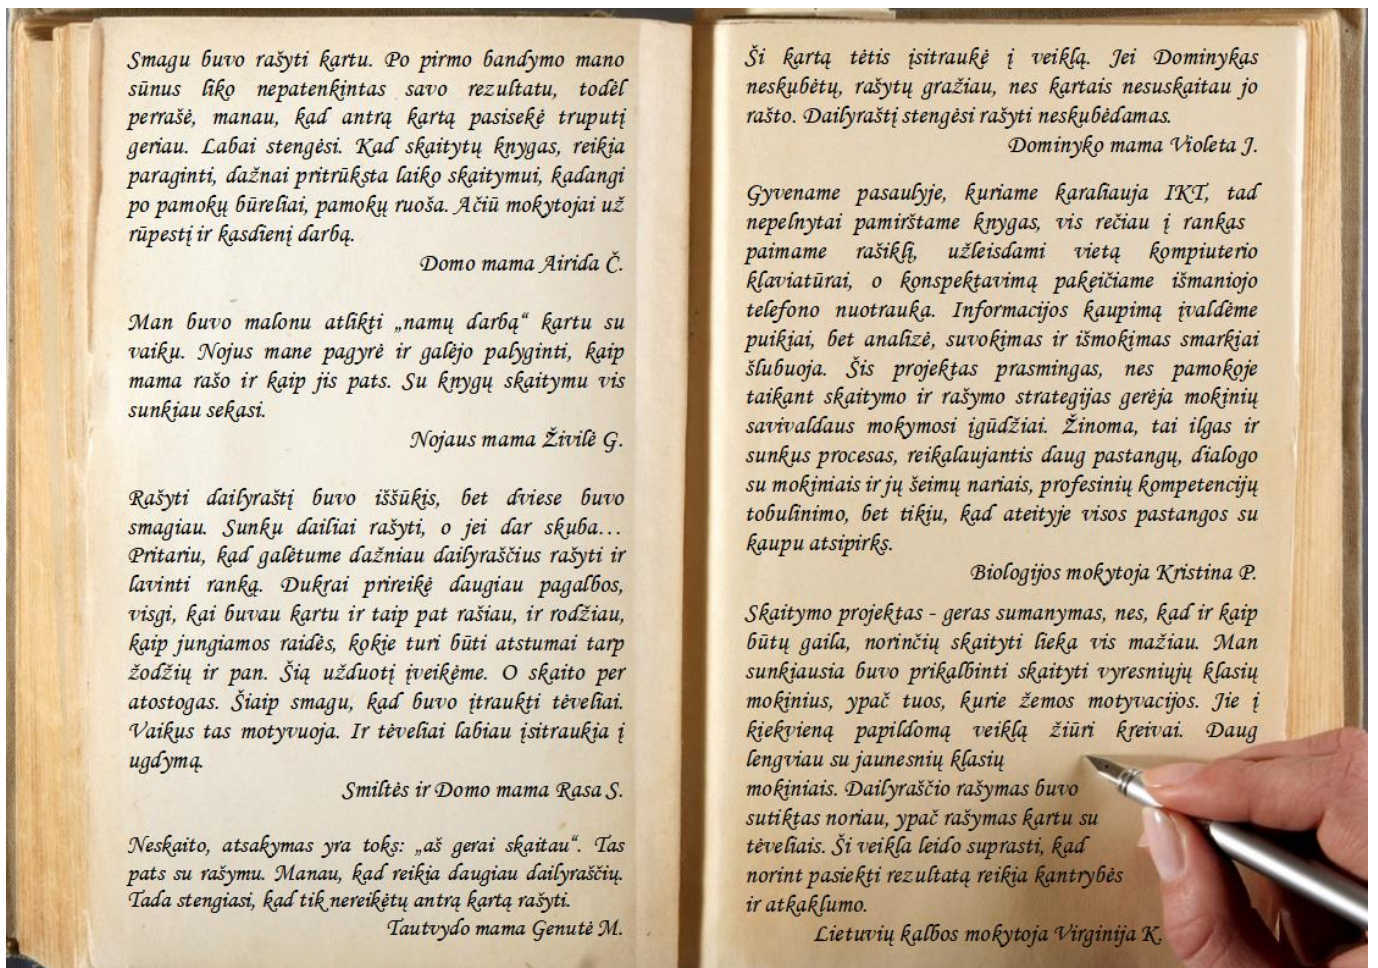 Smagu buvo rašyti kartu. Po pirmo bandymo mano
sūnus liko nepatenkintas savo rezultatu, todėl
perrašė, manau, kad antrą kartą pasisekė truputį
geriau. Labai stengėsi. Kad skaitytų knygas, reikia
paraginti, dažnai pritrūksta laiko skaitymui, kadangi
po pamokų būreliai, pamokų ruoša. Ačiū mokytojai už
rūpestį ir kasdienį darbą.
Domo mama Airida Č.
Man buvo malonu atlikti „namų darbą“ kartu su
vaiku. Nojus mane pagyrė ir galėjo palyginti, kaip
mama rašo ir kaip jis pats. Su knygų skaitymu vis
sunkiau sekasi.
Nojaus mama Živilė G.
Rašyti dailyraštį buvo iššūkis, bet dviese buvo
smagiau. Sunku dailiai rašyti, o jei dar skuba…
Pritariu, kad galėtume dažniau dailyraščius rašyti ir
lavinti ranką. Dukrai prireikė daugiau pagalbos,
visgi, kai buvau kartu ir taip pat rašiau, ir rodžiau,
kaip jungiamos raidės, kokie turi būti atstumai tarp
žodžių ir pan. Šią užduotį įveikėme. O skaito per
atostogas. Šiaip smagu, kad buvo įtraukti tėveliai.
Vaikus tas motyvuoja. Ir tėveliai labiau įsitraukia į
ugdymą.
Smiltės ir Domo mama Rasa S.
Neskaito, atsakymas yra toks: „aš gerai skaitau“. Tas
pats su rašymu. Manau, kad reikia daugiau dailyraščių.
Tada stengiasi, kad tik nereikėtų antrą kartą rašyti.
Tautvydo mama Genutė M.
Ši kartą tėtis įsitraukė į veiklą. Jei Dominykas
neskubėtų, rašytų gražiau, nes kartais nesuskaitau jo
rašto. Dailyraštį stengėsi rašyti neskubėdamas.
Dominyko mama Violeta J.
Gyvename pasaulyje, kuriame karaliauja IKT, tad
nepelnytai pamirštame knygas, vis rečiau į rankas
paimame rašiklį, užleisdami vietą kompiuterio
klaviatūrai, o konspektavimą pakeičiame išmaniojo
telefono nuotrauka. Informacijos kaupimą įvaldėme
puikiai, bet analizė, suvokimas ir išmokimas smarkiai
šlubuoja. Šis projektas prasmingas, nes pamokoje
taikant skaitymo ir rašymo strategijas gerėja mokinių
savivaldaus mokymosi įgūdžiai. Žinoma, tai ilgas ir
sunkus procesas, reikalaujantis daug pastangų, dialogo
su mokiniais ir jų šeimų nariais, profesinių kompetencijų
tobulinimo, bet tikiu, kad ateityje visos pastangos su
kaupu atsipirks.
Biologijos mokytoja Kristina P.
Skaitymo projektas - geras sumanymas, nes, kad ir kaip
būtų gaila, norinčių skaityti lieka vis mažiau. Man
sunkiausia buvo prikalbinti skaityti vyresniųjų klasių
mokinius, ypač tuos, kurie žemos motyvacijos. Jie į
kiekvieną papildomą veiklą žiūri kreivai. Daug
lengviau su jaunesnių klasių
mokiniais. Dailyraščio rašymas buvo
sutiktas noriau, ypač rašymas kartu su
tėveliais. Ši veikla leido suprasti, kad
norint pasiekti rezultatą reikia kantrybės
ir atkaklumo.
Lietuvių kalbos mokytoja Virginija K.